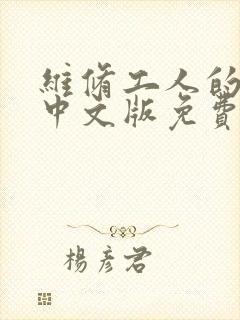 維脩工人的
中文版免費
楊彥君